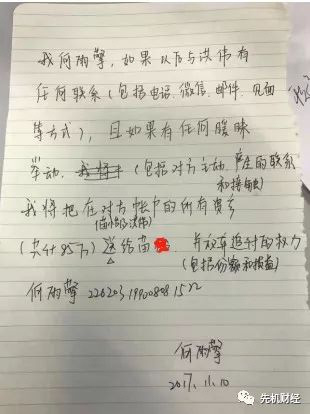 我何雨，如果以后与洪伟有
任何联系（包括电话、微信、邮件、见面
等方式），且如果有任何暧昧
举动，（包括对方主动产生的联系
和接触）
我将把在对方帐户的所有资产
（共计85万）送给苗，并放弃追讨的权力
（包括份额和损益）
何雨
何雨
2017.11.10
先机财经